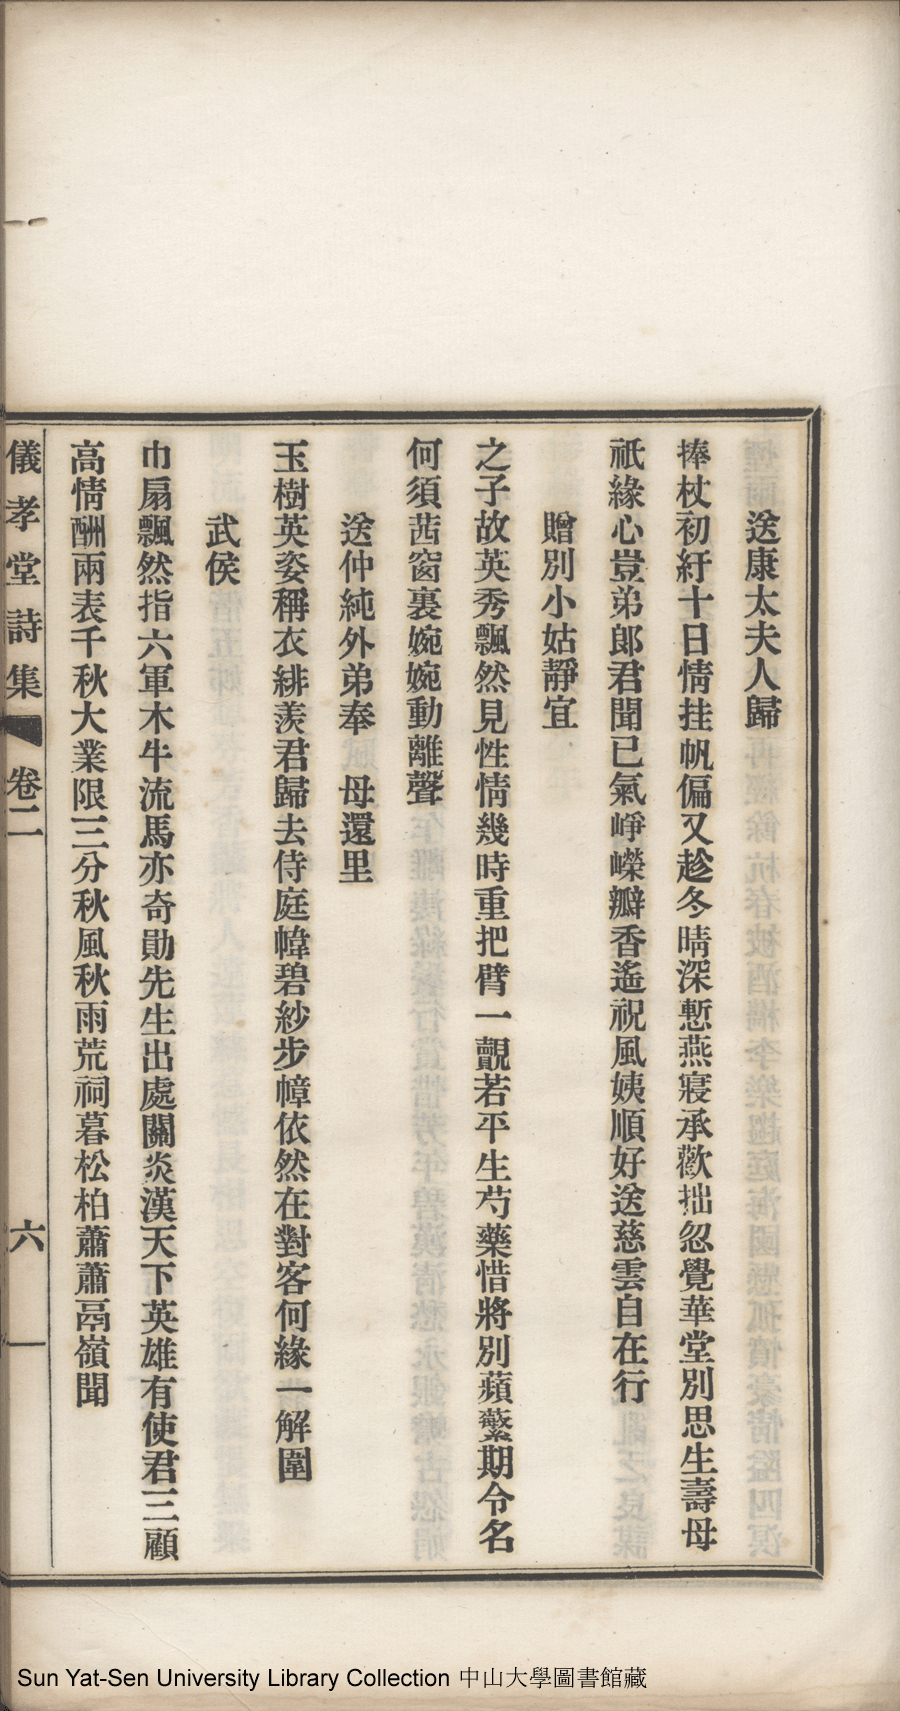 送康太夫人歸
捧杖初紆十日情挂帆偏又趁冬晴深慙燕寢承歡拙忽覺華堂別思生壽母
祇緣心豈弟郎君聞已氣崢嶸瓣香遙祝風姨順好送慈雲自在行
贈別小姑靜宜
之子故英秀飄然見性情幾時重把臂一覿若平生芍藥惜將別蘋蘩期令名
何須茜窗裏婉婉動離聲
送仲純外弟奉　母還里
玉樹英姿稱衣緋羨君歸去侍庭幃碧紗步幛依然在對客何緣一解圍
武侯
巾扇飄然指六軍木牛流馬亦奇勛先生出處關炎漢天下英雄有使君三顧
高情酬兩表千秋大業限三分秋風秋雨荒祠暮松柏蕭蕭鬲嶺聞
儀孝堂詩集　卷二　六
Sun Yat-Sen University Library Collection 中山大學圖書館藏